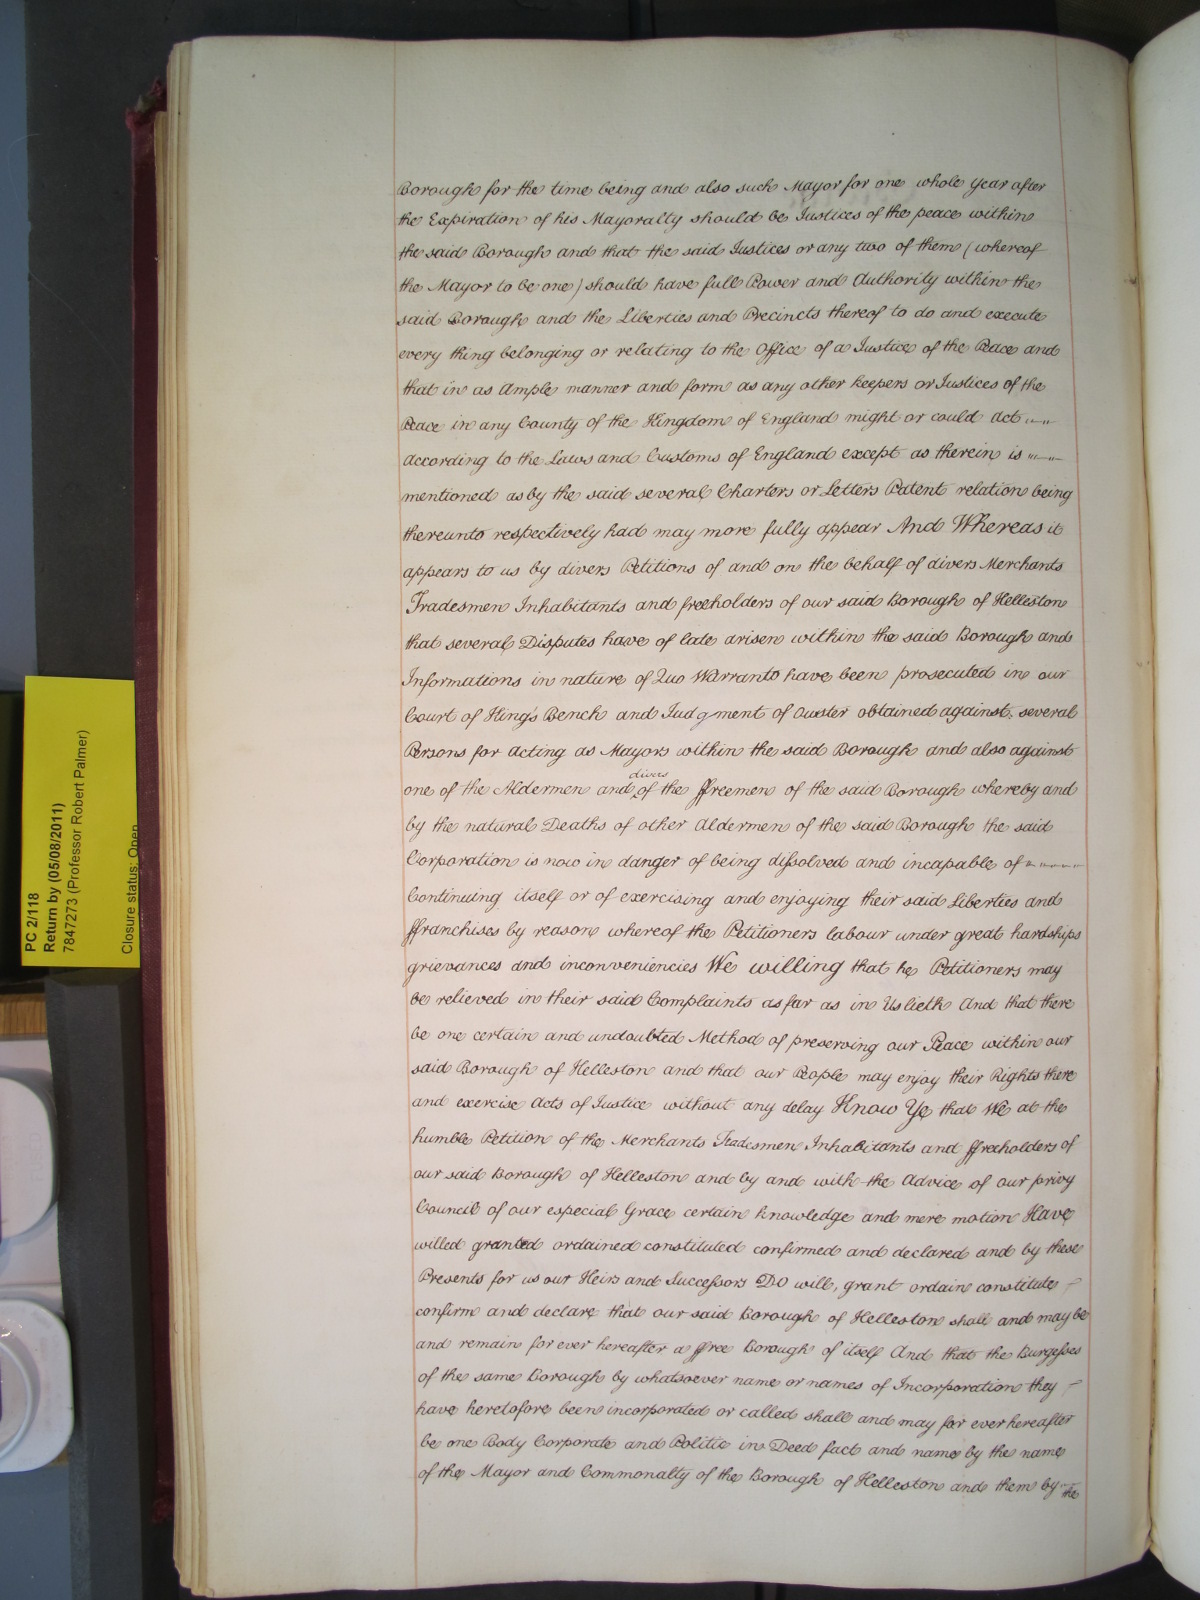 Borough for the time being and also such Mayor for one whole year after
the Expiration of his Mayoralty should be Justices of the peace within
the said Borough and that the said Justices or any two of them (whereof
the Mayor to be one) should have full Power and Authority within the
said Borough and the Liberties and Precincts thereof to do and execute
every thing belonging or relating to the Office of a Justice of the Peace and
that in as Ample manner and form as any other keepers or Justices of the
Peace in any County of the Kingdom of England might or could Act
According to the Laws and Customs of England except as therein is
mentioned as by the said several Charters or Letters Patent relation being
thereunto respectively had may more fully appear And Whereas it
appears to us by divers Petitions of and on the behalf of divers Merchants
Tradesmen Inhabitants and freeholders of our said Borough of Helleston
that several Disputes have of late arisen within the said Borough and
Informations in nature of Quo Warranto have been prosecuted in our
Court of King's Bench and Judgment of Ouster obtained against several
Persons for Acting as Mayors within the said Borough and also against
one of the Aldermen and divers of the ffreemen of the said Borough whereby and
by the natural Deaths of other Aldermen of the said Borough the said
Corporation is now in danger of being dissolved and incapable of
Continuing itself or of exercising and enjoying their said Liberties and
ffranchises by reason whereof the Petitioners labour under great hardships
grievances and inconveniencies We willing that he Petitioners may
be relieved in their said Complaints as far as in Us lieth And that there
be one certain and undoubted Method of preserving our Peace within our
said Borough of Helleston and that our People may enjoy their Rights there
and exercise Acts of Justice without any delay Know Ye that We at the
humble Petition of the Merchants Tradesmen Inhabitants and ffreeholders of
our said Borough of Helleston and by and with the Advice of our privy
Council of our especial Grace certain knowledge and mere motion Have
willed granted ordained constituted confirmed and declared and by these
Presents for us our Heirs and Successors Do will, grant ordain constitute
confirm and declare that our said Borough of Helleston shall and may be
and remain for ever hereafter a ffree Borough of itself And that the Burgesses
of the same Borough by whatsoever name or names of Incorporation they
have heretofore been incorporated or called shall and may for ever hereafter
be one Body Corporate and Politic in Deed fact and name by the name
of the Mayor and Commonalty of the Borough of Helleston and them by the
PC 2/118
Return by (05/08/2011)
7847273 (Professor Robert Palmer)
Closure status: Open